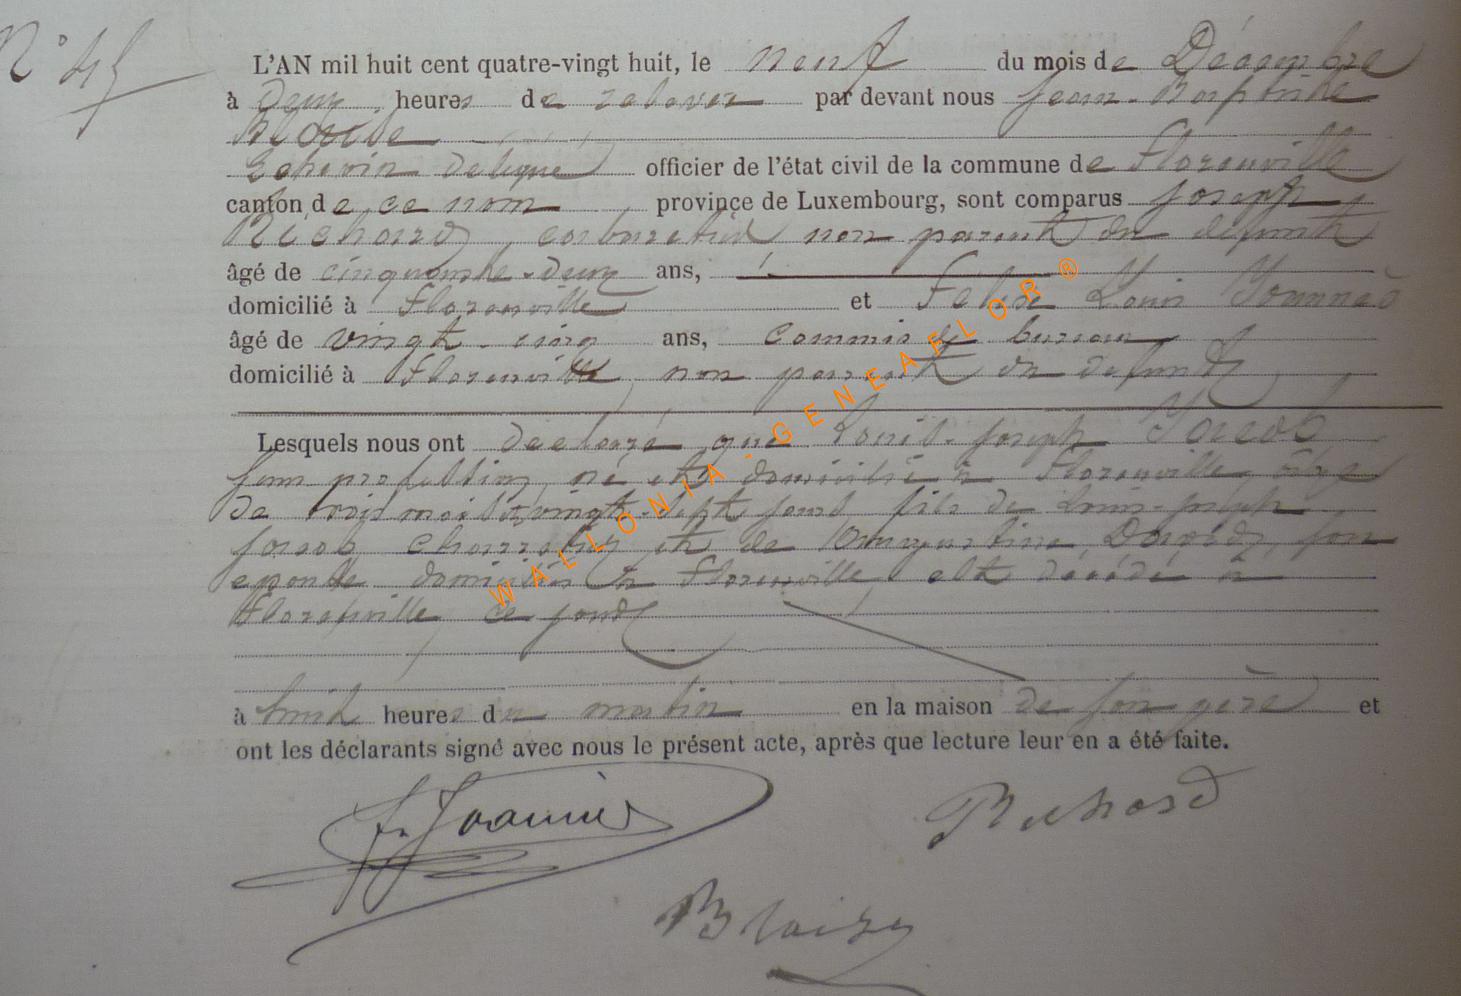 N° 45
L'AN mil huit cent quatre-vingt huit, le neuf du mois de Décembre
à deux heures de relevée par devant nous Jean-Baptiste
Blaise
Echevin délégué officier de l'état civil de la commune de Florenville
canton de ce nom province de Luxembourg, sont comparus Joseph
Richard, cabaretier non parent du défunt
âgé de cinquante-deux ans,
domicilié à Florenville et Félix Louis
âgé de vingt-cinq ans, commis de bureau
domicilié à Florenville, non parent du défunt
Lesquels nous ont déclaré que Louis-Joseph Jacob
sans profession, né et domicilié à Florenville, âgé
de trois mois vingt-sept jours fils de Louis-Joseph
Jacob et de son
épouse domiciliés à Florenville, est décédé à
Florenville ce jourd
à huit heures du matin en la maison de son père et
ont les déclarants signé avec nous le présent acte, après que lecture leur en a été faite.
Richard
Blaise
WALLONIA-GENEAFLOR®